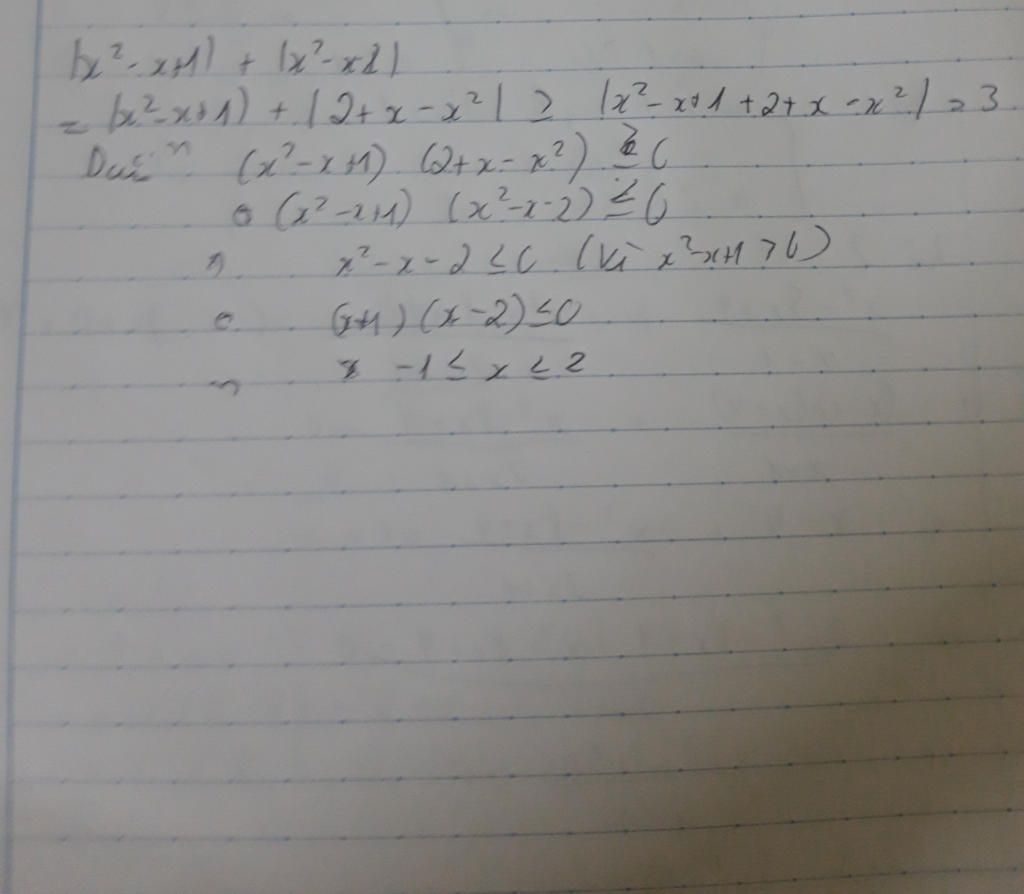 |x² - x+1| + |x² - x2|
= |x² - x+1| + |2+x - x²| ≥ |x² - x+1 + 2+x - x²| = 3
Dấu "=" (x² - x+1) (2+x - x²) ≥ 0
(x² - x+1) (x² - x - 2) ≤ 0
x² - x - 2 ≤ 0 (Vì x² - x+1 > 0)
(x+1) (x - 2) ≤ 0
-1 ≤ x ≤ 2